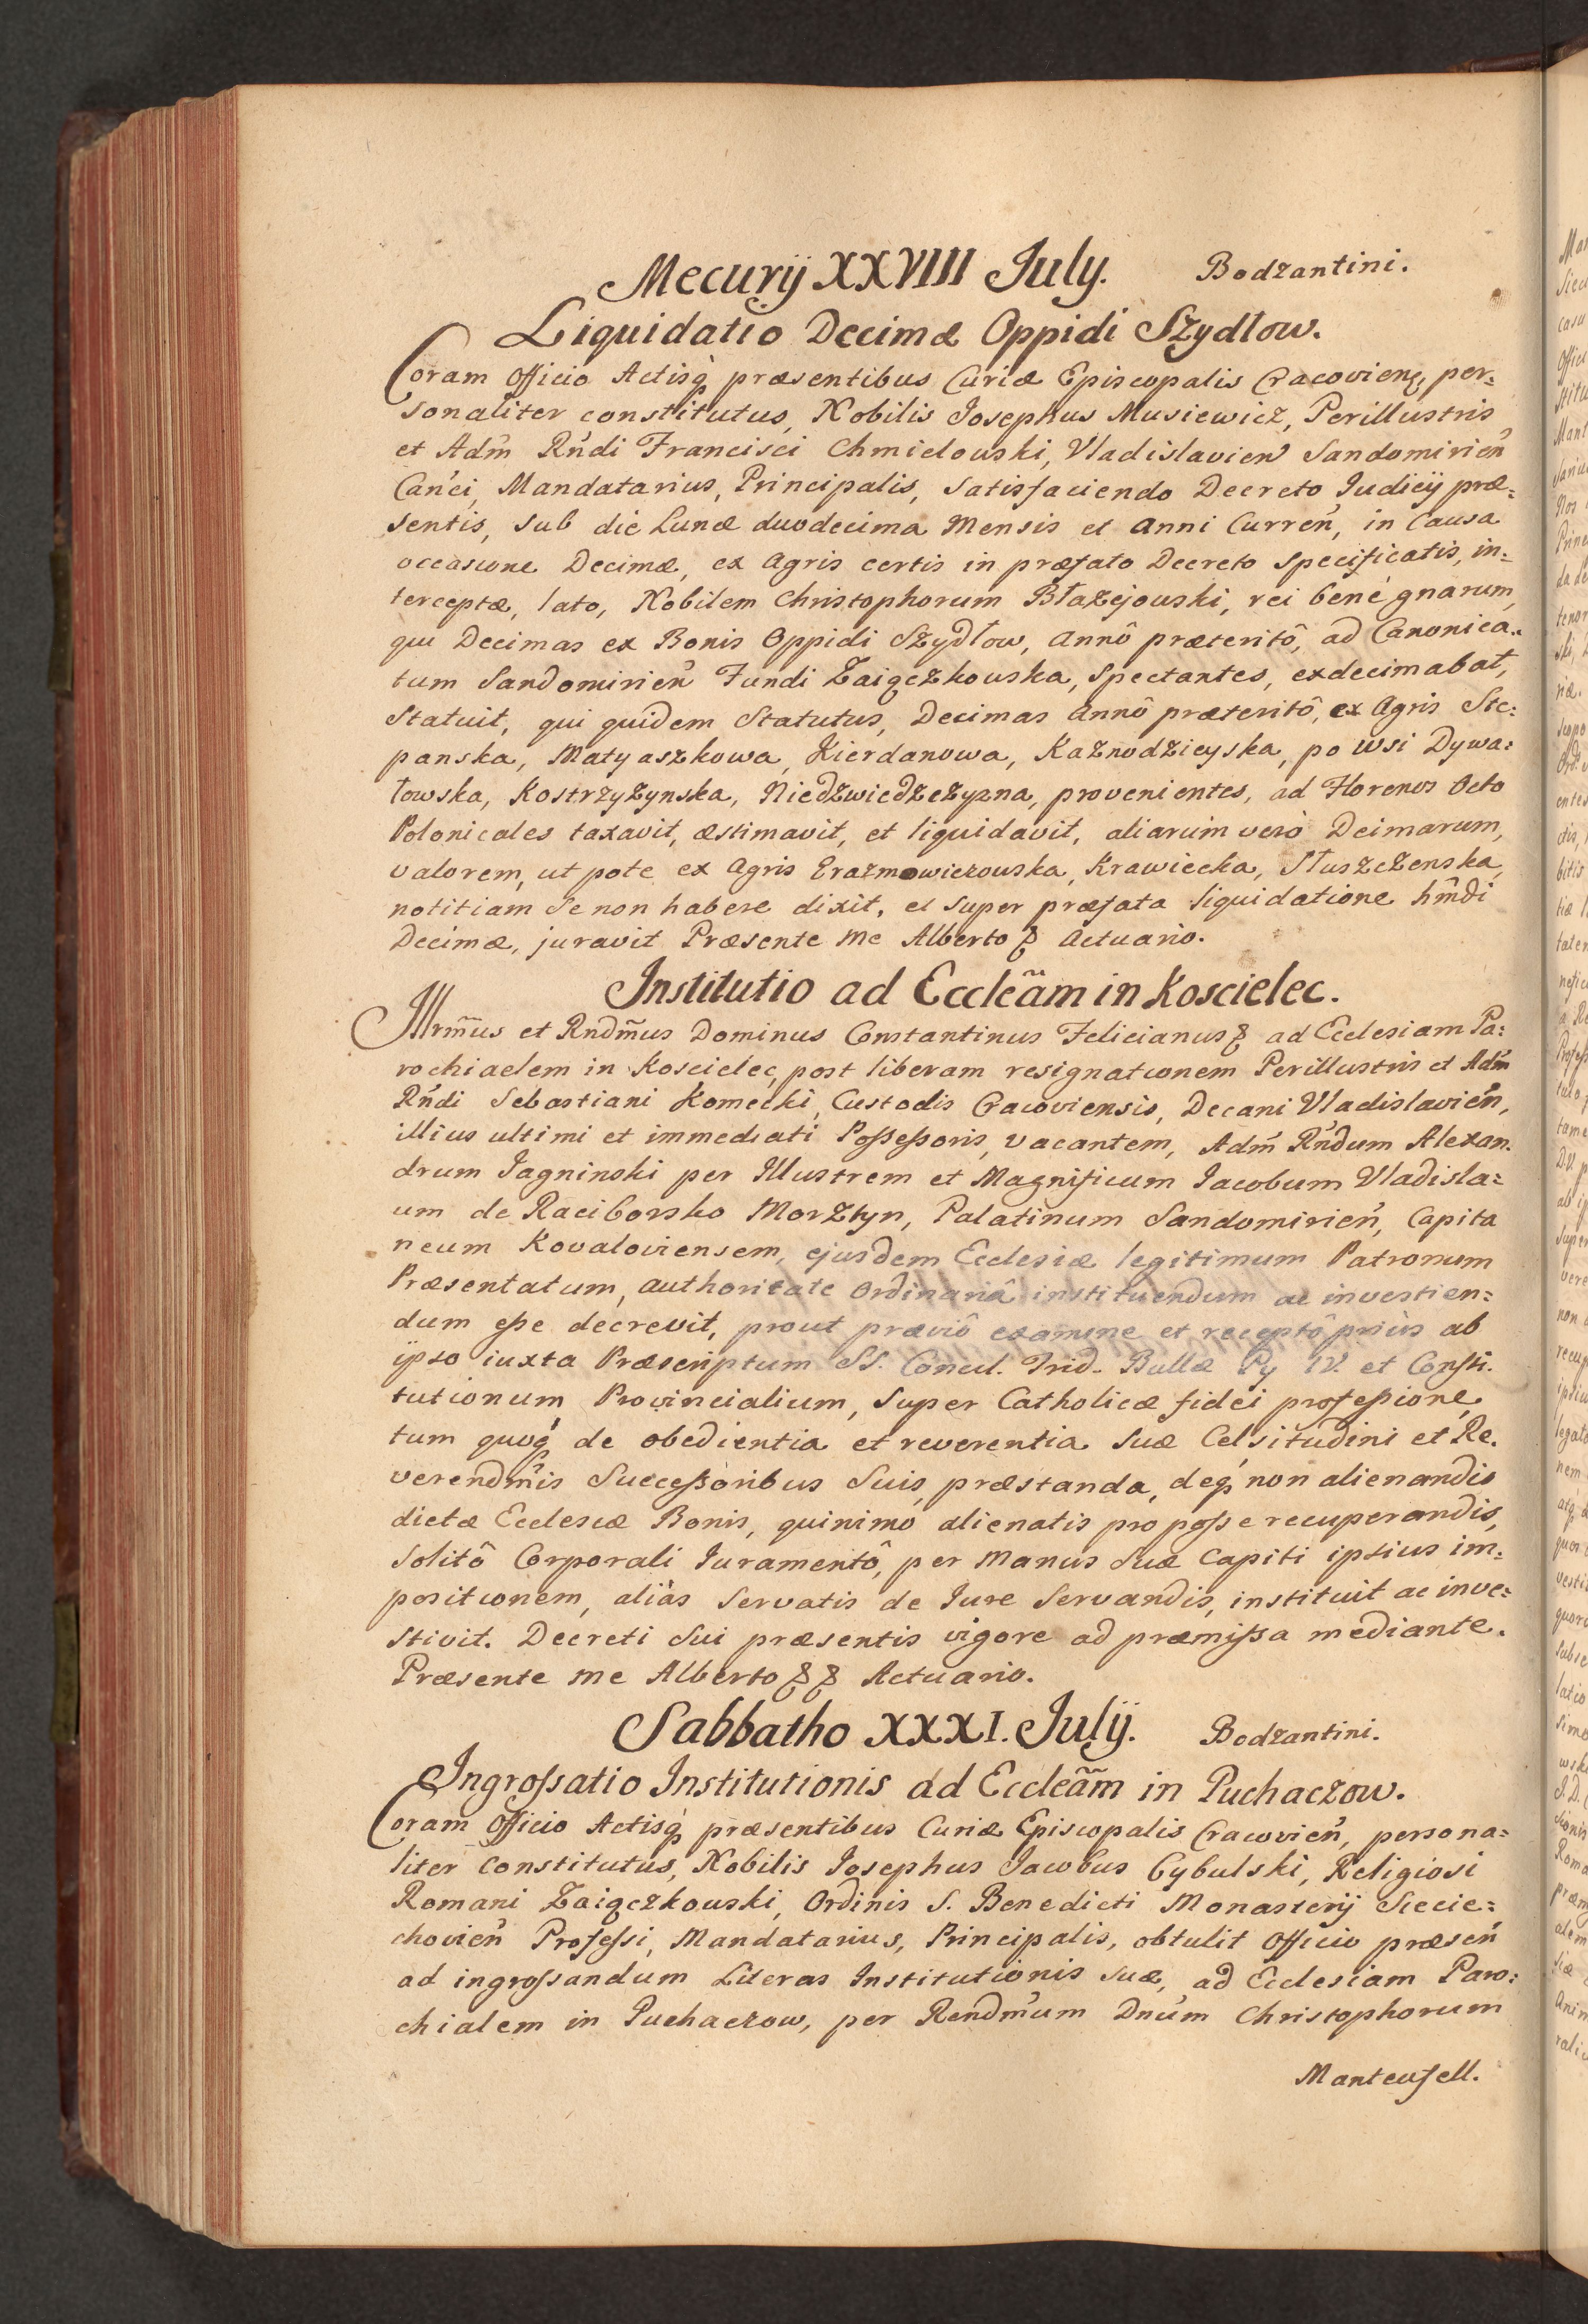 Mecurij XXVIIII July. Bodzantini.
Liquidatio Decimæ Oppidi Szydlow.
Coram Officio Actisq́ præsentibus Curiæ Episcopalis Cracovienꝭ, per:
sonaliter constitutus, Nobilis Josephus Musiewicz, Perillustris
et Adm̃ Rńdi Francisci Chmielowski, Vladislavień Sandomirień
Cańci, Mandatarius, Principalis, Satisfaciendo Decreto Judicij præ:
sentis, sub die Lunæ duodecima Mensis et Anni Curreń, in Causa
occasione Decimæ, ex Agris certis in præfato Decreto Specificatis, in:
terceptæ, lato, Nobilem Christophorum Błażejouski, rei benè gnarum,
qui Decimas ex Bonis Oppidi Szydłow, Annô præteritô, ad Canonica:
tum Sandomirień Fundi Zaiączkouska, Spectantes, exdecimabat,
Statuit, qui quidem Statutus, Decimas Annô præteritô, ex Agris Ste:
panska, Matyaszkowa, Kierdanowa, Kaznodzieyska, po wsi Dywa:
łowska, Kostrzyżynska, Niedzwiedzeżyzna, provenientes, ad Florenos Octo
Polonicales taxavit, æstimavit, et liquidavit, aliarum verò Deimarum,
valorem, ut pote ex Agris Erazmowiczouska, Krawiecka, Słuszczenska,
notitiam Se non habere dixit, et Super præfata liquidatione hm̃di
Decimæ, juravit Præsente me Alberto ꝝ Actuario.
Institutio ad Eccleãm in Koscielec.
Illrm̃us et Rndm̃us Dominus Constantinus Felicianus ꝝ ad Ecclesiam Pa:
rochiaelem in Koscielec, post liberam resignationem Perillustris et Adm̃
Rńdi Sebastiani Komecki, Custodis Cracoviensis, Decani Vladislavień,
illius ultimi et immediati Poſseſsoris, vacantem, Adm̃ Rńdum Alexan:
drum Jagninski per Illustrem et Magnificum Jacobum Vladisla:
um de Raciborsko Morsztyn, Palatinum Sandomirień, Capita
neum Kovaloviensem, ejusdem Ecclesiæ legitimum Patronum
Præsentatum, authoritate Ordinariâ instituendum ac investien:
dum eſse decrevit, prout præviô examine et receptô priùs ab
ipso iuxta Præscriptum SS. Concil. Trid. Bullæ Py IV. et Consti:
tutionum Provincialium, Super Catholicæ fidei profeſsione,
tum quoq́ de obedientia et reverentia Suæ Celsitudini et Re.
verendm̃is Succeſsoribus Suis, præstanda, deq́ non alienandis
dictæ Ecclesiæ Bonis, quinimò alienatis pro poſse recuperandis,
Solitô Corporali Juramentô, per Manus Suæ Capiti ipsius im:
positionem, aliàs Servatis de Jure Servandis, instituit ac inve:
Stivit. Decreti Sui præsentis vigore ad præmiſsa mediante.
Præsente me Alberto ꝝ ꝝ Actuario.
Sabbatho XXXI. Julij. Bodzantini.
Ingroſsatio Institutionis ad Eccleãm in Puchaczow.
Coram Officio Actisq́ præsentibus Curiæ Episcopalis Cracovień, persona:
liter constitutus, Nobilis Josephus Jacobus Cybulski, Religiosi
Romani Zaiączkouski, Ordinis S. Benedicti Monasterij Siecie:
chovień Profeſsi, Mandatarius, Principalis, obtulit Officio præseń
ad ingroſsandum Literas Institutionis Suæ, ad Ecclesiam Paro:
chialem in Puchaczow, per Rendm̃um Dnum̃ Christophorum
Manteufell.